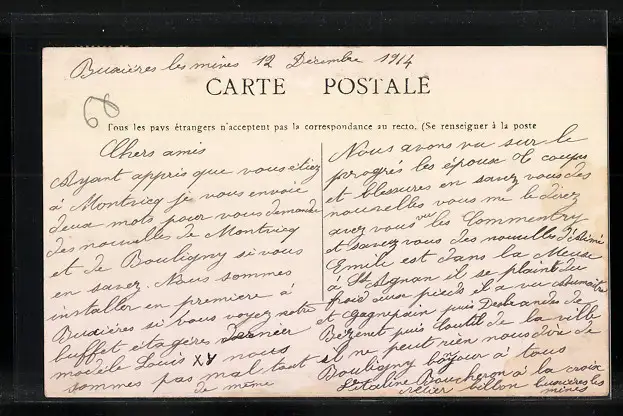 Buxières les mines 12 Décembre 1914
CARTE POSTALE
68
Tous les pays étrangers n'acceptent pas la correspondance au recto. (Se renseigner à la poste
Chers amis
Ayant appris que vous étiez
à Montvicq je vous envoie
deux mots pour vous demander
des nouvelles de Montvicq
et de Bouligny si vous
en savez. Nous sommes
installer en première à
Buxières si vous voyez notre
buffet étagères dernier
modèle Louis XV nous
sommes pas mal tout
de même
Nous avons vu sur le
progrès les époux coups
et blessures en savez vous des
nouvelles vous me le direz
avez vous vu les Commentry
et savez vous des nouvelles d'Aimé
Emile est dans la Meuse
à St Agnan il se plaint du
froid aux pieds il a vu
et Gagnepain puis Desbrandes de
Bézenet puis Coutil de la ville
et il ne peut rien nous dire de
Bouligny bonjour à tous
Létaline Boucheron à la croix
billon buxières les
mines